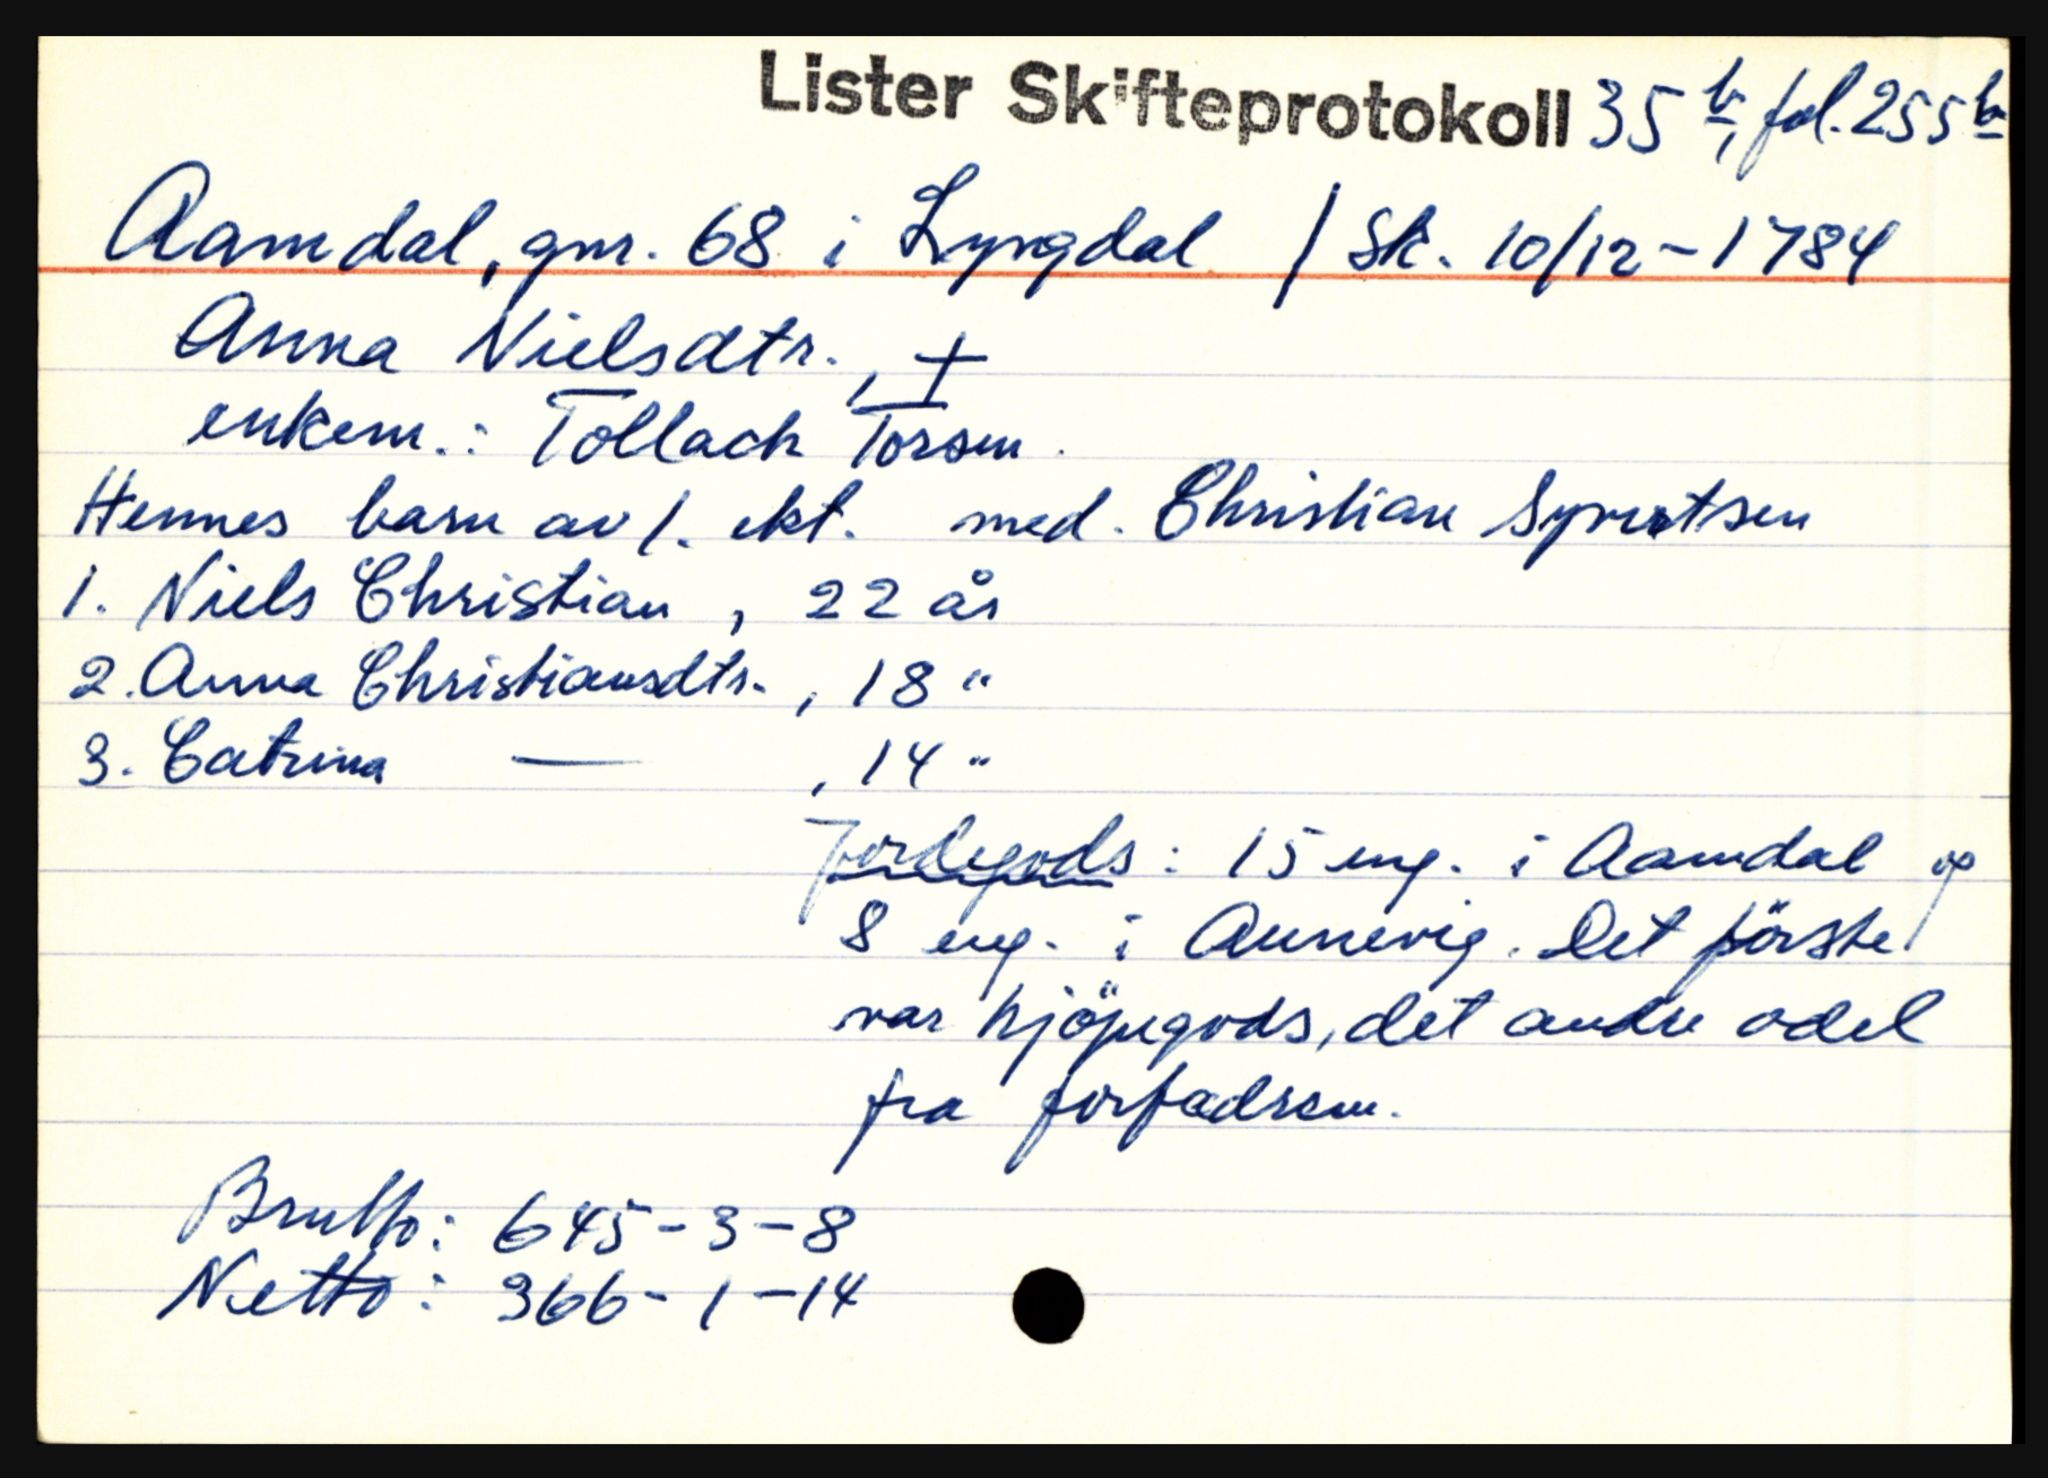 Lister Skifteprotokoll 35 b, fol. 255 b
Aamdal, gnr. 68 i Lyngdal / Sk. 10/12-1784
Anna Nielsdtr., +
enkem.: Tollach Torsen.
Hennes barn av 1. ekt. med. Christian Syvertsen
1. Niels Christian, 22 år
2. Anna Christiansdtr., 18 "
3. Catrina —, 14 "
Jordegods: 15 eng. i Aamdal og
8 eng. i Aunevig. Det förste
var kjöpegods, det andre odel
fra forfedrene.
Brutto: 645-3-8
Netto: 366-1-14